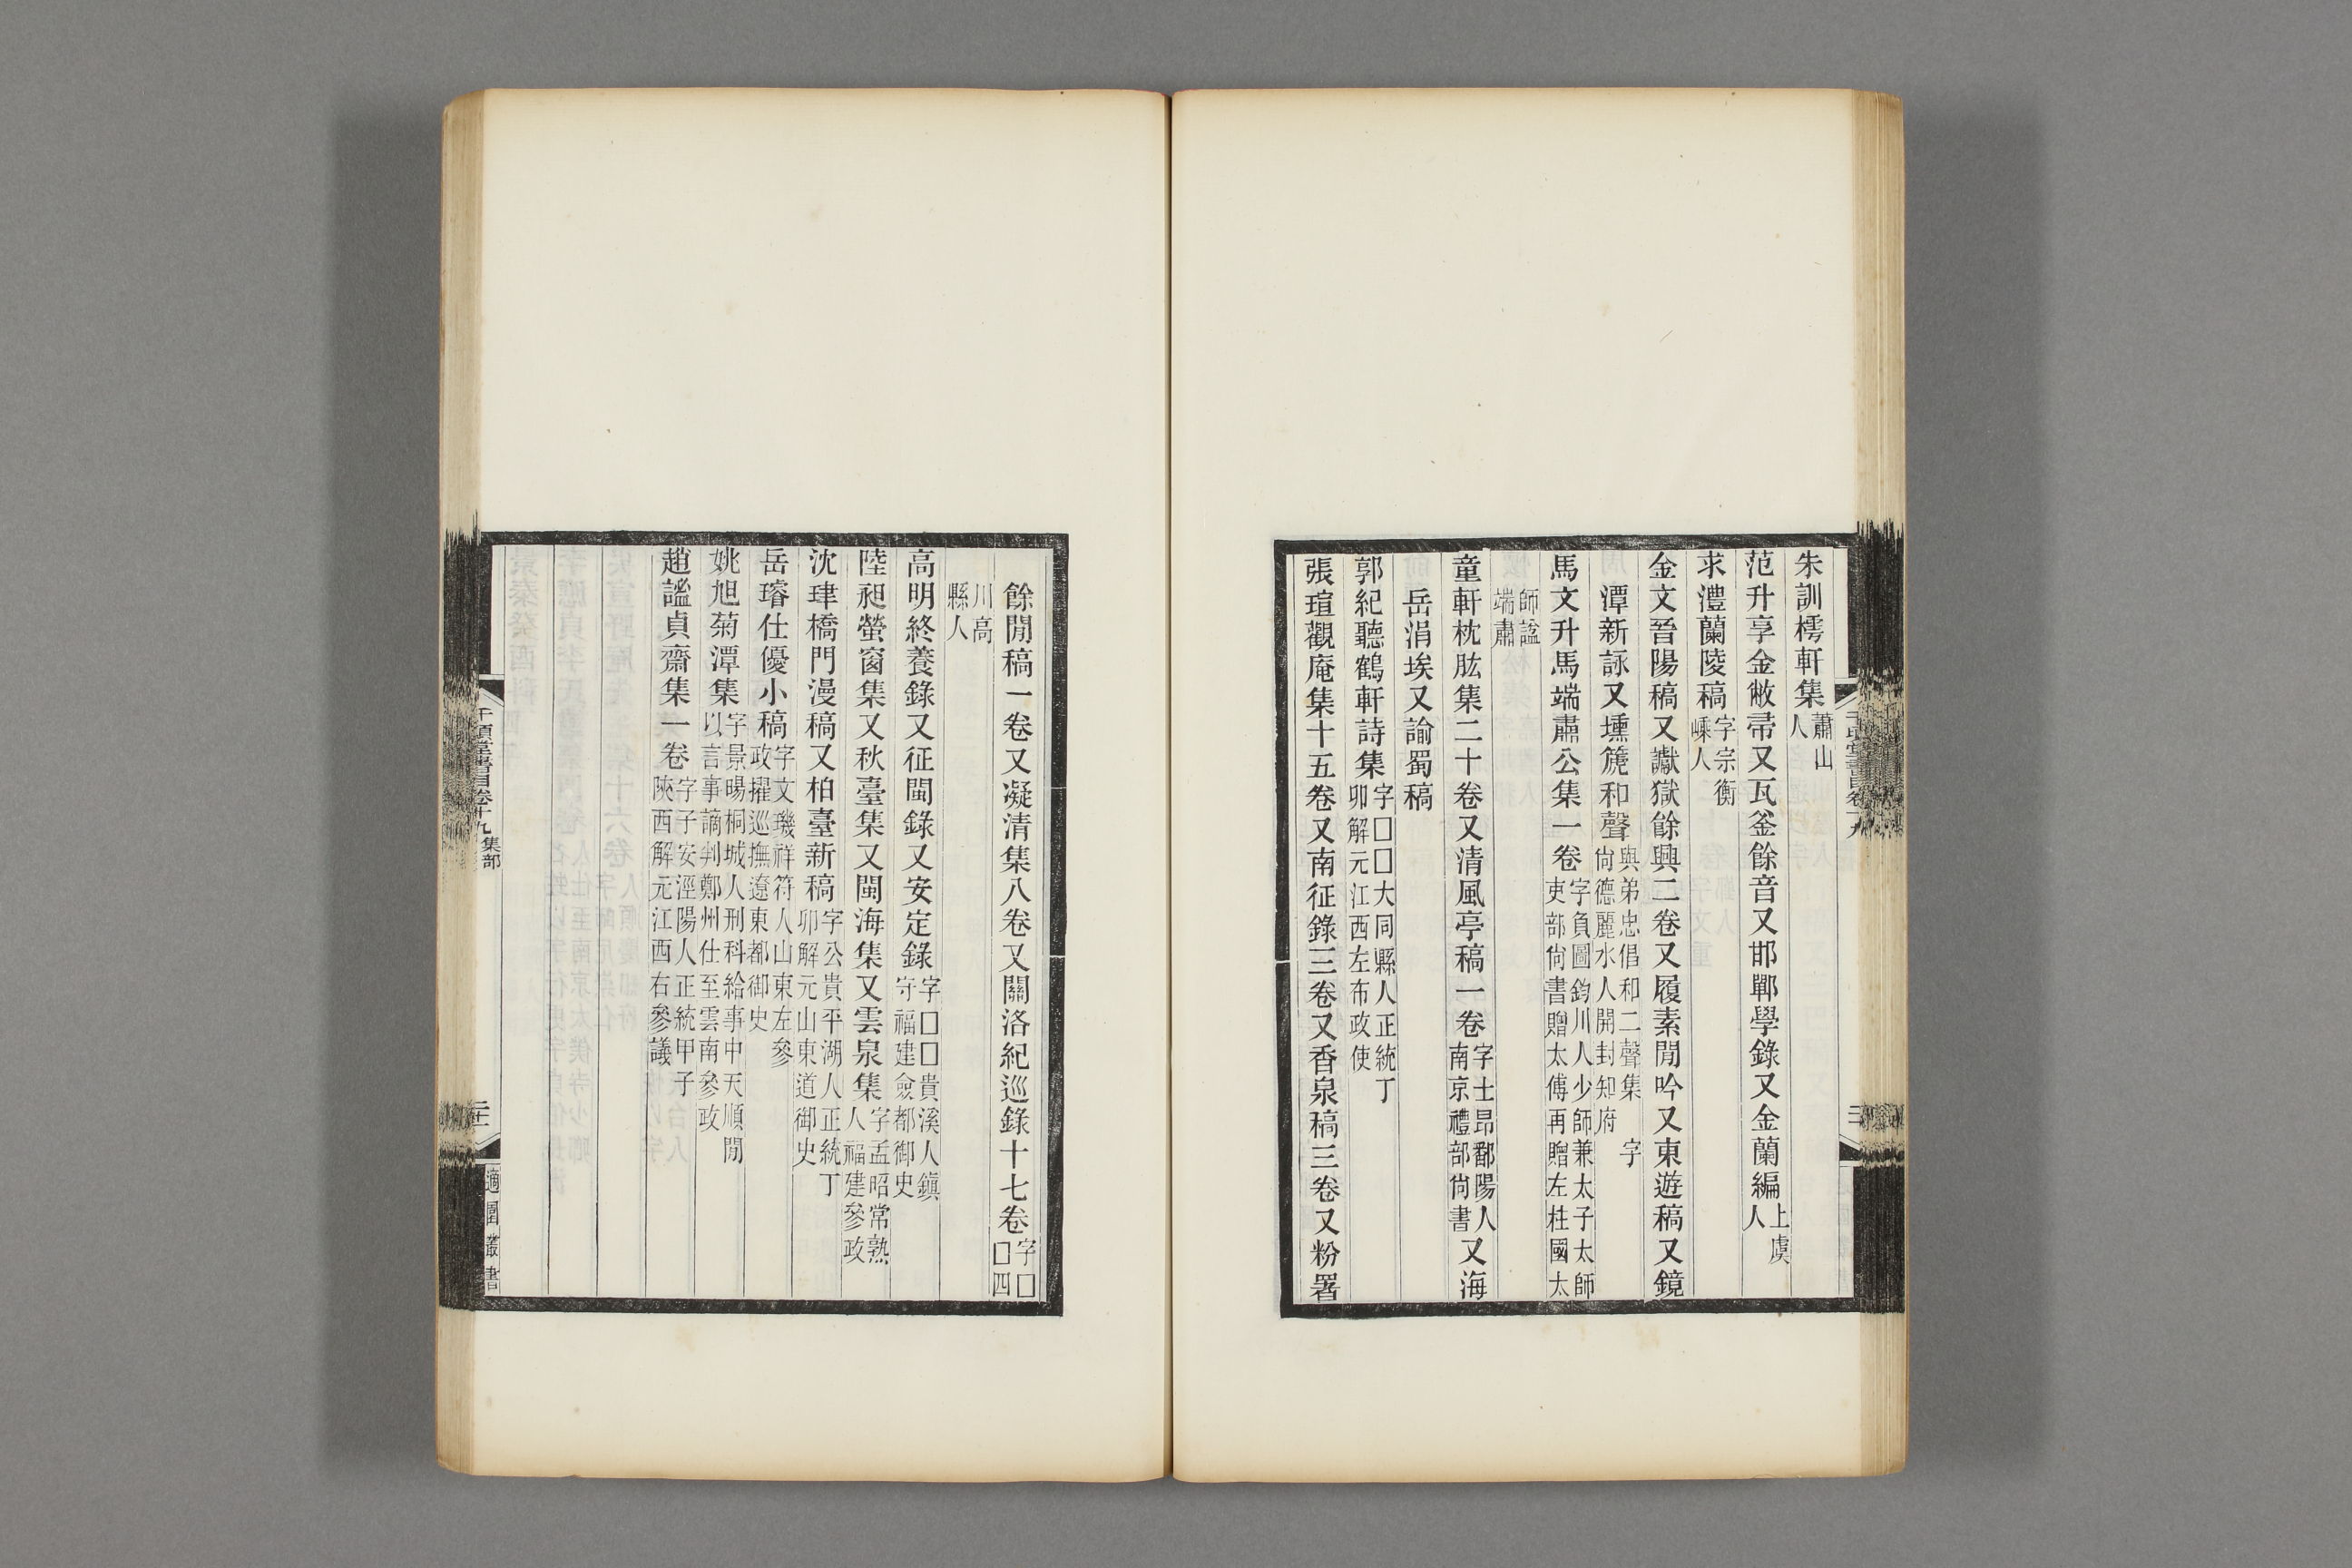 朱訓樗軒集蕭山人
范升享金敝帚又瓦釜餘音又邯鄲學錄又金蘭編上虞人
求澧蘭陵稿字宗衡嵊人
金文晉陽稿又讞獄餘興二卷又履素閒吟又東遊稿又鏡
潭新詠又壎篪和聲與弟忠倡和二聲集 字尙德麗水人開封知府
馬文升馬端肅公集一卷字負圖鈞川人少師兼太子太師吏部尙書贈太傅再贈左柱國太
師諡端肅
童軒枕肱集二十卷又清風亭稿一卷字士昂鄱陽人南京禮部尙書又海
岳涓埃又諭蜀稿
郭紀聽鶴軒詩集字□□大同縣人正統丁卯解元江西左布政使
張瑄觀庵集十五卷又南征錄三卷又香泉稿三卷又粉署
餘閒稿一卷又凝清集八卷又關洛紀巡錄十七卷字□□四
川高縣人
高明終養錄又征閩錄又安定錄字□□貴溪人鎭守福建僉都御史
陸昶螢窗集又秋臺集又閩海集又雲泉集字孟昭常熟人福建參政
沈珒橋門漫稿又柏臺新稿字公貴平湖人正統丁卯解元山東道御史
岳璿仕優小稿字文璣祥符人山東左參政擢巡撫遼東都御史
姚旭菊潭集字景暘桐城人刑科給事中天順閒以言事謫判鄭州仕至雲南參政
趙謐貞齋集一卷字子安涇陽人正統甲子陝西解元江西右參議
千頃堂書目卷十九 集部
適園叢書